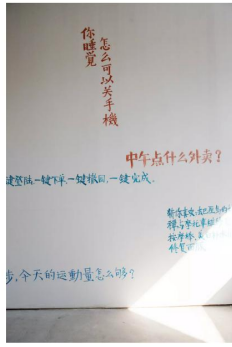 你睡覺
怎么可以关手機
中午点什么外卖?
键登陆,一键下单,一键撤回,一键完成。
按摩椅
步,今天的运動量怎么够?